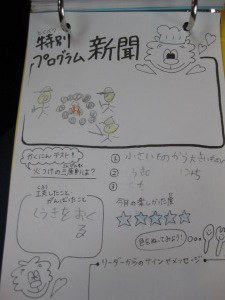 とくべつ
特別
プログラム 新聞
かくにんテスト!
火つけの三原則は?
① 小さいものから大きいもの
②
③
工夫したこと・
がんばったこと
くうきをおく
る
今日の楽しかった度
☆☆☆☆☆
色をぬってみよう!
リーダーからのサインやメッセージ